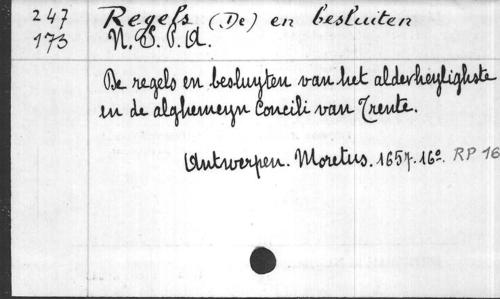 247 Regels (De) en besluiten
173 N. S. P. A.
De regels en besluyten van het alderheylighste
en de alghemeyn Concili van Trente.
Antwerpen. Moretus. 1657. 16º. RP 16